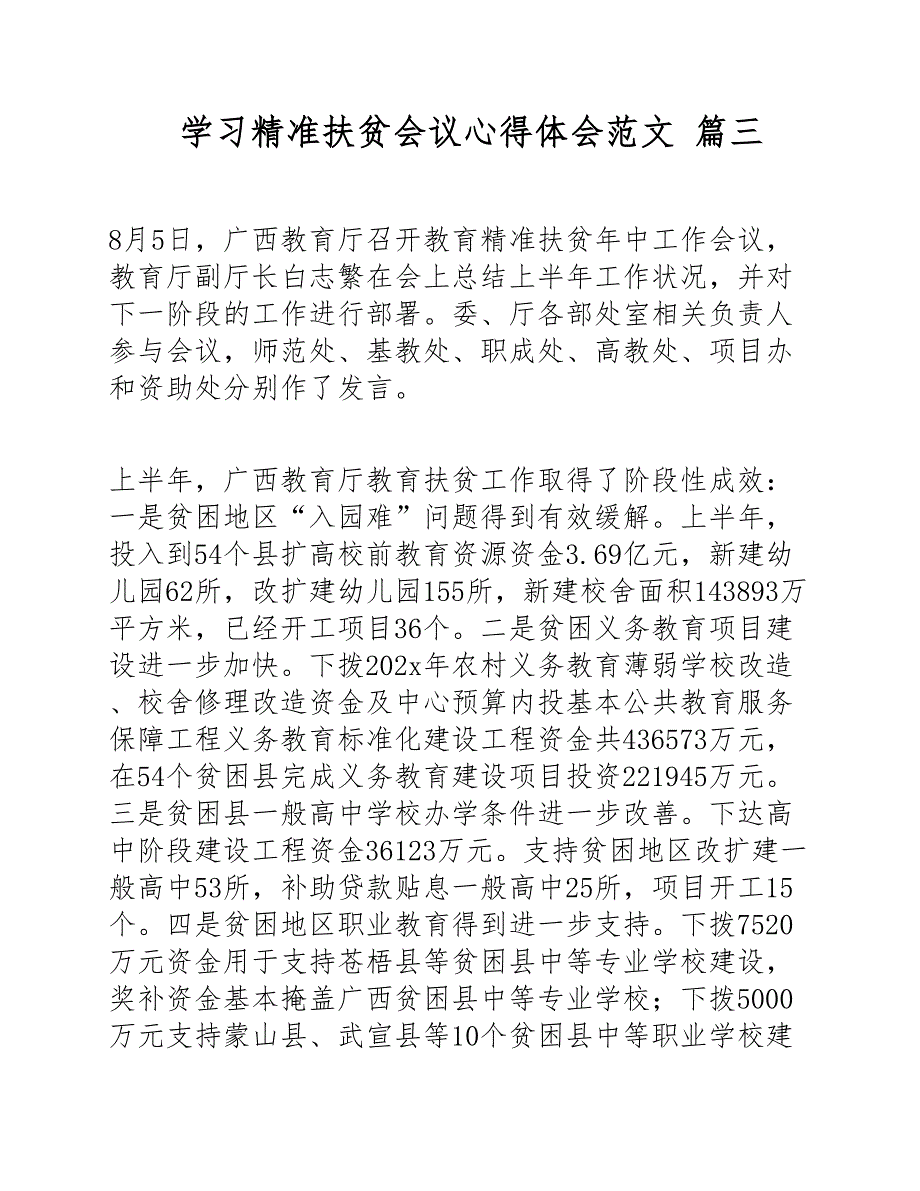 学习精准扶贫会议心得体会范文 篇三
8月5日，广西教育厅召开教育精准扶贫年中工作会议，
教育厅副厅长白志繁在会上总结上半年工作状况，并对
下一阶段的工作进行部署。委、厅各部处室相关负责人
参与会议，师范处、基教处、职成处、高教处、项目办
和资助处分别作了发言。
上半年，广西教育厅教育扶贫工作取得了阶段性成效：
一是贫困地区“入园难”问题得到有效缓解。上半年，
投入到54个县扩高校前教育资源资金3.69亿元，新建幼
儿园62所，改扩建幼儿园155所，新建校舍面积143893万
平方米，已经开工项目36个。二是贫困义务教育项目建
设进一步加快。下拨202x年农村义务教育薄弱学校改造
、校舍修理改造资金及中心预算内投基本公共教育服务
保障工程义务教育标准化建设工程资金共436573万元，
在54个贫困县完成义务教育建设项目投资221945万元。
三是贫困县一般高中学校办学条件进一步改善。下达高
中阶段建设工程资金36123万元。支持贫困地区改扩建一
般高中53所，补助贷款贴息一般高中25所，项目开工15
个。四是贫困地区职业教育得到进一步支持。下拨7520
万元资金用于支持苍梧县等贫困县中等专业学校建设，
奖补资金基本掩盖广西贫困县中等专业学校；下拨5000
万元支持蒙山县、武宣县等10个贫困县中等职业学校建